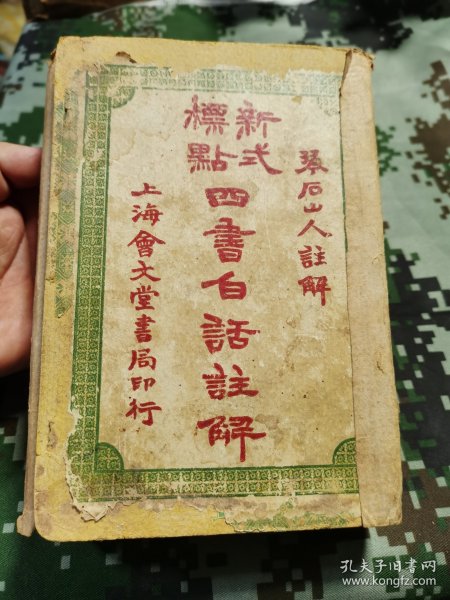 琴石山人註解
新式
標點
四書白話註解
上海會文堂書局印行
孔夫子旧书网
www.kongfz.com